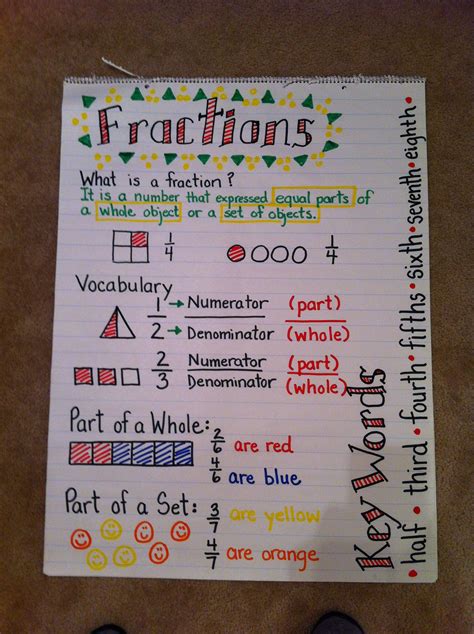 Fractions
What is a fraction?
It is a number that expressed equal parts of
a whole object or a set of objects.
1/4
1/4
Vocabulary
1 → Numerator (part)
2 → Denominator (whole)
2 Numerator (part)
3 Denominator (whole)
Part of a Whole:
2/6 are red
4/6 are blue
Part of a Set:
3/7 are yellow
4/7 are orange
Key Words
• half • third • fourth • fifths • sixth • seventh • eighth •